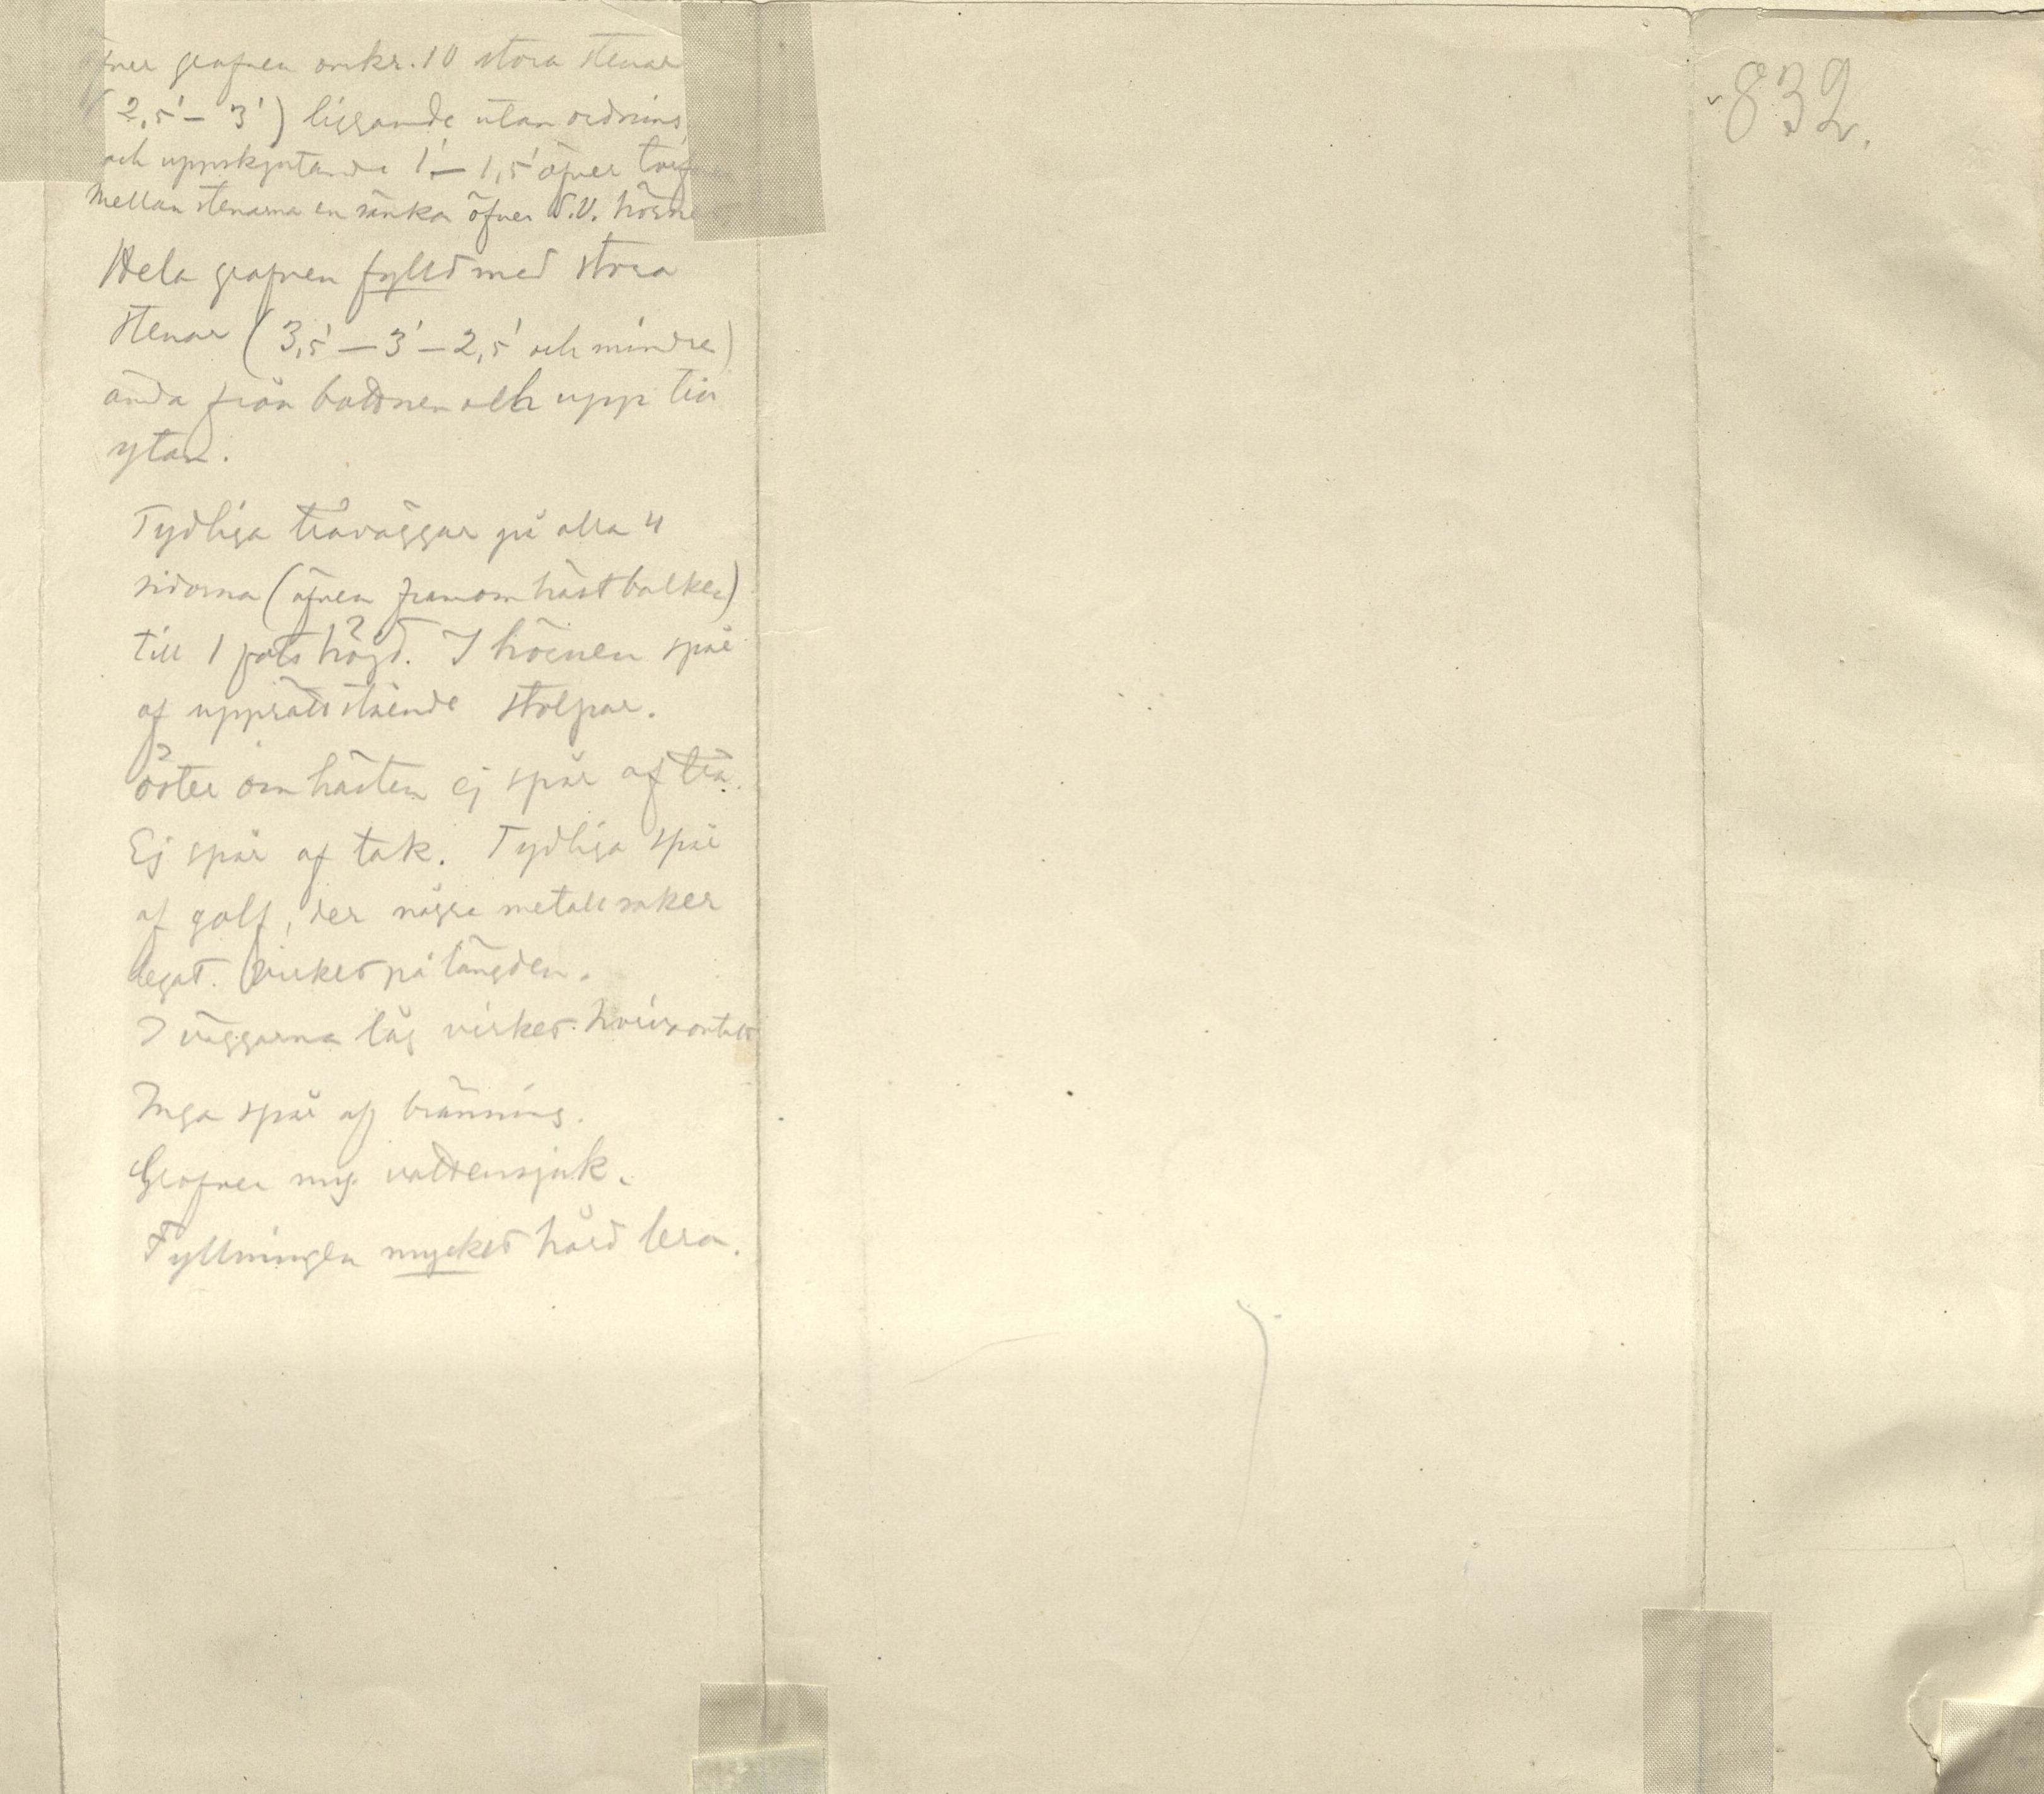 öfver grafven omkr. 10 stora stenar
(2,5' – 3') liggande utan ordning
och uppskjutande 1' – 1,5' öfver torfven
Mellan stenarna en sänka öfver S.V. hörne
Hela grafven fylld med stora
stenar (3,5' – 3' – 2,5' och mindre)
ända från bottnen och upp till
ytan.
Tydliga träväggar på alla 4
sidorna (äfven framom hästbalken)
till 1 fots höjd. I hörnen spår
af upprättstående stolpar.
öster om hästen ej spår af trä.
Ej spår af tak. Tydliga spår
af golf, der några metallsaker
legat. Virket på längden.
I väggarna låg virket horizontalt
Inga spår af bränning.
Grafven myc. vattensjuk.
Fyllningen mycket hård lera.
832.